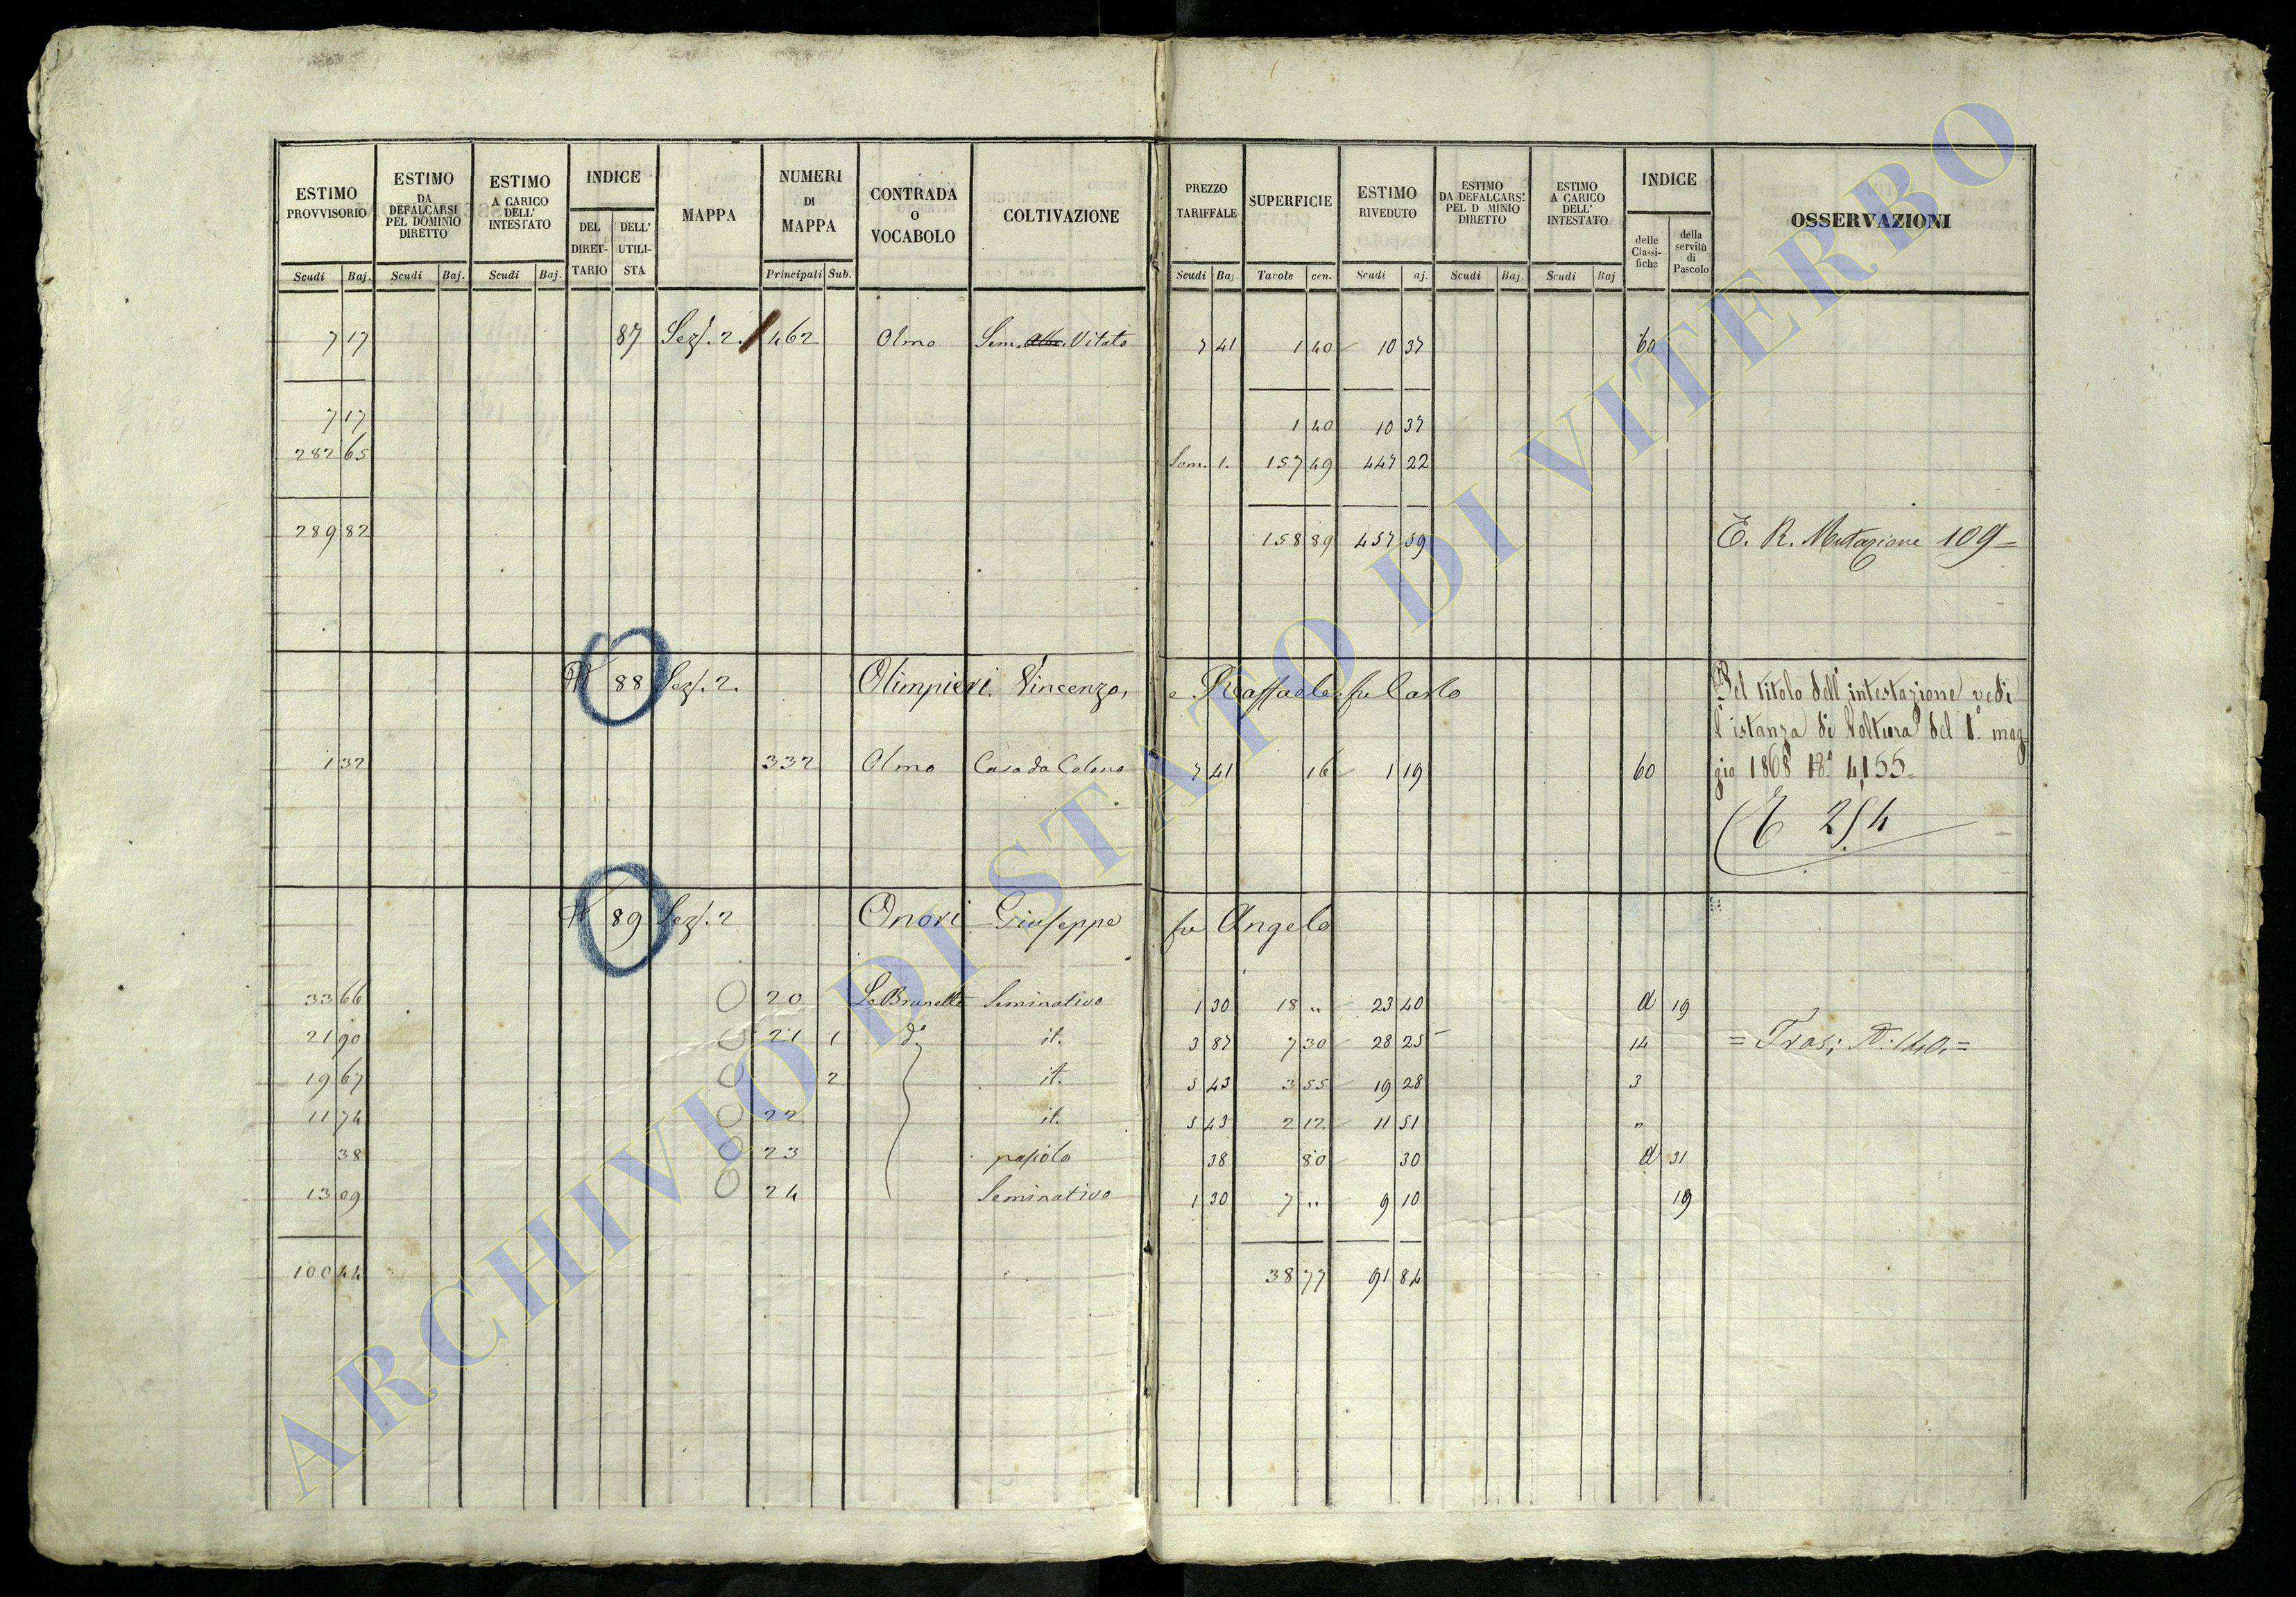 ESTIMO PROVVISORIO Scudi Baj.
ESTIMO DA DEFALCARSI PEL DOMINIO DIRETTO Scudi Baj.
ESTIMO A CARICO DELL' INTESTATO Scudi Baj.
INDICE DEL DIRET-TARIO DELL' UTILI-STA
MAPPA
NUMERI DI MAPPA Principali Sub.
CONTRADA O VOCABOLO
COLTIVAZIONE
PREZZO TARIFFALE Scudi Baj
SUPERFICIE Tavole cen.
ESTIMO RIVEDUTO Scudi aj.
ESTIMO DA DEFALCARSI PEL D MINIO DIRETTO Scudi Baj.
ESTIMO A CARICO DELL' INTESTATO Scudi Baj
INDICE delle Classi-fiche della servitù di Pascolo
OSSERVAZIONI
7 17 87 Sez. 2. 462 Olmo Sem. Vitato 7 41 1 40 10 37 60
7 17 1 40 10 37
282 65 Som. 1. 157 49 447 22
289 82 158 89 457 59 E. R. Mutazione 109=
88 Sez. 2. Olimpieri Vincenzo, e Raffaele fu Carlo
Pel titolo dell' intestazione vedi
l' istanza di Voltura del 1° mag
gio 1868 N° 4155.
1 32 332 Olmo Casa da Colono 7 41 16 1 19 60
E 254
89 Sez. 2 Onori Giuseppe fu Angelo
33 66 20 Le Brunelle Seminativo 1 30 18 " 23 40 d 19
21 90 21 1 d° it. 3 87 7 30 28 25 14 = Tras: N: 140. =
19 67 2 it. 5 43 3 55 19 28 3
11 74 22 it. 5 43 2 12 11 51 "
38 23 pascolo 38 80 30 d 31
13 09 24 Seminativo 1 30 7 " 9 10 19
100 44 38 77 91 84
ARCHIVIO DI STATO DI VITERBO